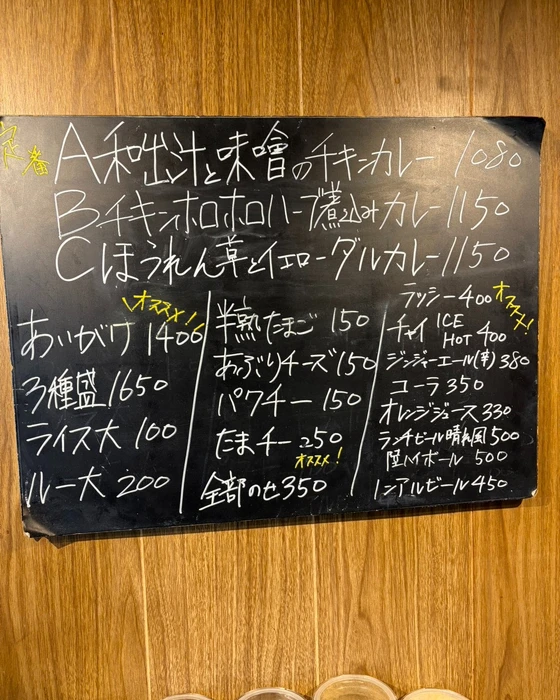 定番
A和出汁と味噌のチキンカレー 1080
Bチキンホロホロハーブ煮込みカレー1150
Cほうれん草とイエローダルカレー1150
オススメ!
あいがけ 1400
3種盛 1650
ライス大 100
ルー大 200
半熟たまご 150
あぶりチーズ150
パクチー 150
たまチー 250
オススメ!
全部のせ350
ラッシー400
オススメ!
チャイ ICE HOT 400
ジンジャーエール(辛) 380
コーラ 350
オレンジジュース 330
ランチビール晴れ風500
陸ハイボール 500
ノンアルビール450